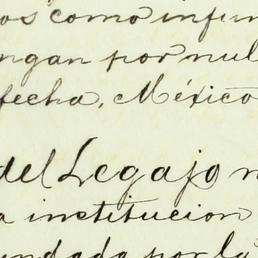 os como infun
ngan por nul
fecha, México
del Legajo n
a institucion
undada por la